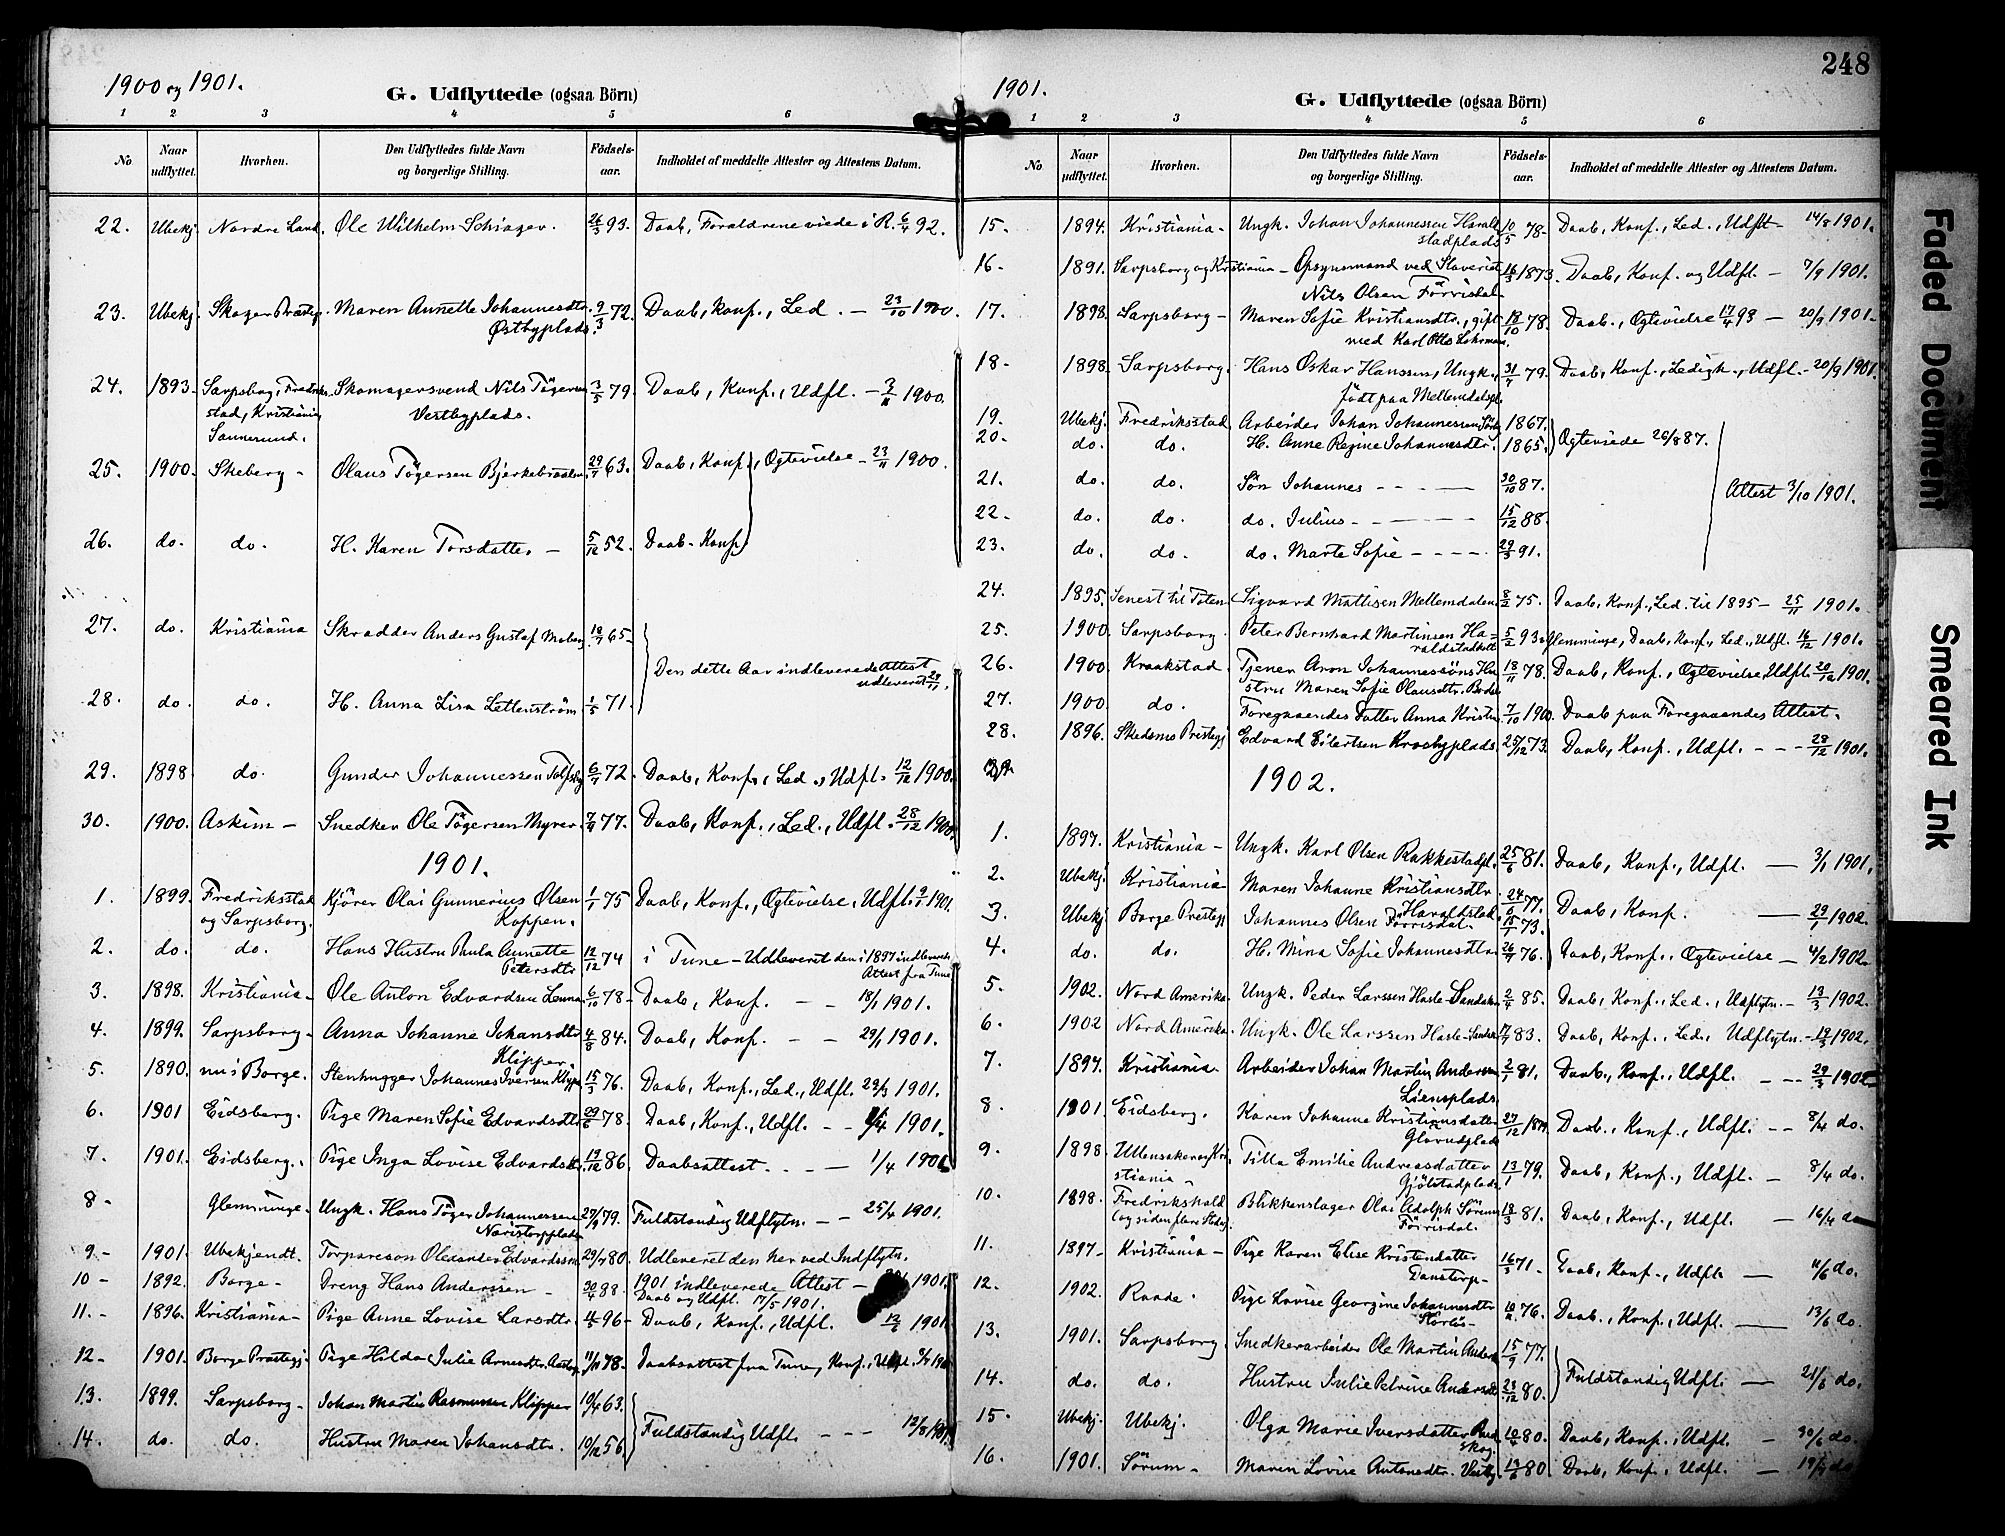 248
1900 og 1901.
G. Udflyttede (ogsaa Börn)
1 2 3 4 5 6
No
Naar udflyttet.
Hvorhen.
Den Udflyttedes fulde Navn og borgerlige Stilling.
Födsels-aar.
Indholdet af meddelte Attester og Attestens Datum.
22. Ubekj. Nordre Land. Ole Wilhelm 93. Daab, Foraldrene viede i R. 6/4 92.
23. Ubekj. Skager Prästeg. Maren Annette Johannesdtr. 9/3 72. Daab, Konf., Led. – 23/10 1900.
Östbyplads.
24. 1893. Sarpsborg, Fredrik- Skomagersvend Nils Tögersen 3/5 79. Daab, Konf., Udfl. – 1900.
stad, Kristiania Vestbyplads.
25. 1900. Skeberg – Olaus Tögersen 29/7 63. Daab, Konf., Ogtevielse – 23/11 1900.
26. do. do. H. Karen Torsdatter – 5/12 52. Daab - Konf.
27. do. Kristiania Skradder Anders Gustaf 65 –
Den dette Aar indleverede Attest
udleveret
28. do. do. H. Anna Lisa Lettenström 1/5 71.
29. 1898 do. Gunder Johannessen 6/7 72. Daab, Konf., Led., Udfl. 1900.
30. 1900. Askim – Snedker Ole Tögersen Myrer. 77. Daab, Konf., Led., Udfl. 28/12 1900.
1901.
1. 1899. Fredriksstad Kjörer Olai Gunnerius Olsen 1/1 75 Daab, Konf., Ogtevielse, Udfl. 1901.
og Sarpsborg. Koppen.
2. do. do. Hans Hustru Paula Annette 12/12 74 i Tune – Udleveret den i 1897 indleverede
Petersdtr. Attest fra Tune
3. 1898. Kristiania – Ole Anton Edvardsen 6/10 78 – Daab, Konf. – – 18/1 1901.
4. 1899. Sarpsborg – Anna Johanne Johansdtr. 4/8 84. Daab, Konf. – – 29/1 1901.
Klipper.
5. 1890. nu i Borge. Stenhugger Johannes Iversen 15/3 76. Daab, Konf., Led., Udfl. 29/3 1901.
6. 1901 Eidsberg. Pige Maren Sofie Edvardsdtr. 78. Daab, Konf., Udfl. – – 1/4 1901.
7. 1901. Eidsberg. Pige Inga Lovise Edvardsdtr. 19/12 86 Daabsattest. . . – 1/4 1901.
8 – Glemminge. Ungk. Hans Töger Johannessen 27/9 79. Fuldstandig Udflytn. – – 25/4 1901.
9 – 1901. Ubekjendt. Torpareson 29/7 80. Udleveret den her ved Indflytn.
10 – 1892. Borge – Dreng Hans Anderssen – 30/4 88. 1901 indleverede Attest – 1901.
Daab og Udfl. 17/5 1901.
11. – 1896. Kristiania – Pige Anne Lovise Larsdtr. 96 – Daab, Konf., Udfl. 12/6 1901
12 – 1901. Borge Prästegj. Pige Hilda Julie 11/11 78. Daabsattest fra Tune, Konf., Udfl.
13. 1899. Sarpsborg – Johan Martin Rasmussen Klipper 19/4 63.
Fuldstandig Udfl. – – – 12/8 1901
14. do. do. Hustru Maren Johansdtr. 10/12 56.
1901.
G. Udflyttede (ogsaa Börn)
1 2 3 4 5 6
No
Naar udflyttet.
Hvorhen.
Den Udflyttedes fulde Navn og borgerlige Stilling.
Födsels-aar.
Indholdet af meddelte Attester og Attestens Datum.
15. 1894. Kristiania – Ungk. Johan Johannessen Harald- 10/5 78 – Daab, Konf., Led., Udflt – 14/8 1901.
stadplads
16. 1891. Sarpsborg og Kristiania – Opsynsmand ved 1873. Daab, Konf. og Udfl. – 7/9 1901.
Nils Olsen Förrisdal.
17. 1898. Sarpsborg – Maren Sofie Kristiansdtr., gift 18/10 78. Daab., Ogtevielse 17/4 98 – 20/9 1901 –
med Karl Otto
18. 1898. Sarpsborg. Hans Oskar Hanssen, Ungk., 31/7 79. Daab, Konf., Ledigh., Udfl. – 20/9 1901.
födt paa
19. Ubekj. Fredriksstad Arbeider Johan Johannessen 1867.
20. do. do. H. Anne Regine Johannesdtr. 1865. Ogteviede 26/8 87.
21. do. do. Sön Johannes – – – 30/10 87.
Attest 3/10 1901.
22. do. do. do. Julius – – – 15/12 88.
23. do. do. do. Marte Sofie – – – 29/3 91.
24. 1895. Senest til Toten. Sigvard Mattisen Mellemdalen 8/2 75. Daab, Konf., Led. til 1895 – 25/11 1901.
25. 1900. Sarpsborg. Peter Bernhard Martinsen Ha- 5/2 93. Glemminge, Daab, Konf., Led., Udfl. 16/12 1901.
26. 1900. Kraakstad. Tjener Aron Johannessöns Hu- 18/11 78. Daab, Konf., Ogtevielse, Udfl. 20/12 1901.
stru Maren Sofie Olausdtr.
27. 1900. do. Foregaaendes Datter Anna 7/10 1900. Daab paa Foregaaendes Attest.
28. 1896. Skedsmo Prestegj. Edvard Eilertsen Krosbyplads. 25/12 73. Daab, Konf., Udfl. – – – 28/12 1901.
1902.
1. 1897. Kristiania – Ungk. Karl Olsen Rakkestadpl. 25/6 81. Daab, Konf., Udfl. – 3/1 1901.
2. Ubekj. Kristiania Maren Johanne Kristiansdtr. 77. Daab, Konf. – 29/1 1902.
Haraldstad.
3. Ubekj. Borge Prestegj. Johannes Olsen Förrisdal. 73.
4. do. do. H. Mina Sofie Johannesdtr. 26/7 76. Daab, Konf., Ogtevielse – 4/2 1902.
5. 1902. Nord Amerika. Ungk. Peder Larssen Hasle 2/4 85. Daab, Konf., Led., Udflytn. – 19/3 1902.
6. 1902 Nord Amerika. Ungk. Ole Larssen Hasle 83. Daab, Konf., Led., Udflytn. – 19/3 1902.
7. 1897. Kristiania. Arbeider Johan Martin Andersen 2/1 81. Daab, Konf., Udfl. – – – 29/3 1902
Liensplads.
8. 1901. Eidsberg. Karen Johanne Kristiansdatter 27/12 Daab., Konf., Udfl. – – 8/4 do.
9. 1898. Ullensaker og Kri- Tilla Emilie Andreasdatter 13/1 79. Daab, Konf., Udfl. – 8/4 do.
stiania – Gjölstadplads.
10. 1898. Fredrikshald Blikkenslager Olai Adolph 18/3 81. Daab, Konf., Udfl. – 16/4 do
(og siden flere Steder) Förrisdal.
11. 1897 – Kristiania – Pige Karen Elise Kristendatter 16/3 71 – Daab, Konf., Udfl. – 11/6 do.
Danstorp –
12. 1902. Raade. Pige Lovise Georgine Johannesdtr. 76. Daab., Konf., Udfl. – 13/6 do.
13. 1901. Sarpsborg. Snedkerarbeider Ole Martin 15/9 77.
Fuldstandig Udfl. – 21/6 do.
14. do. do. Hustru Julie Petrine 23/12 80.
15. Ubekj. Ubekj. Olga Marie Iversdatter 10/4 80. Daab, Konf., Udfl. – 30/6 do.
skog.
16. 1901. Sörum – Maren Lovise Antonedtr. 80 Daab, Konf., Udfl. – do
Faded Document
Smeared Ink